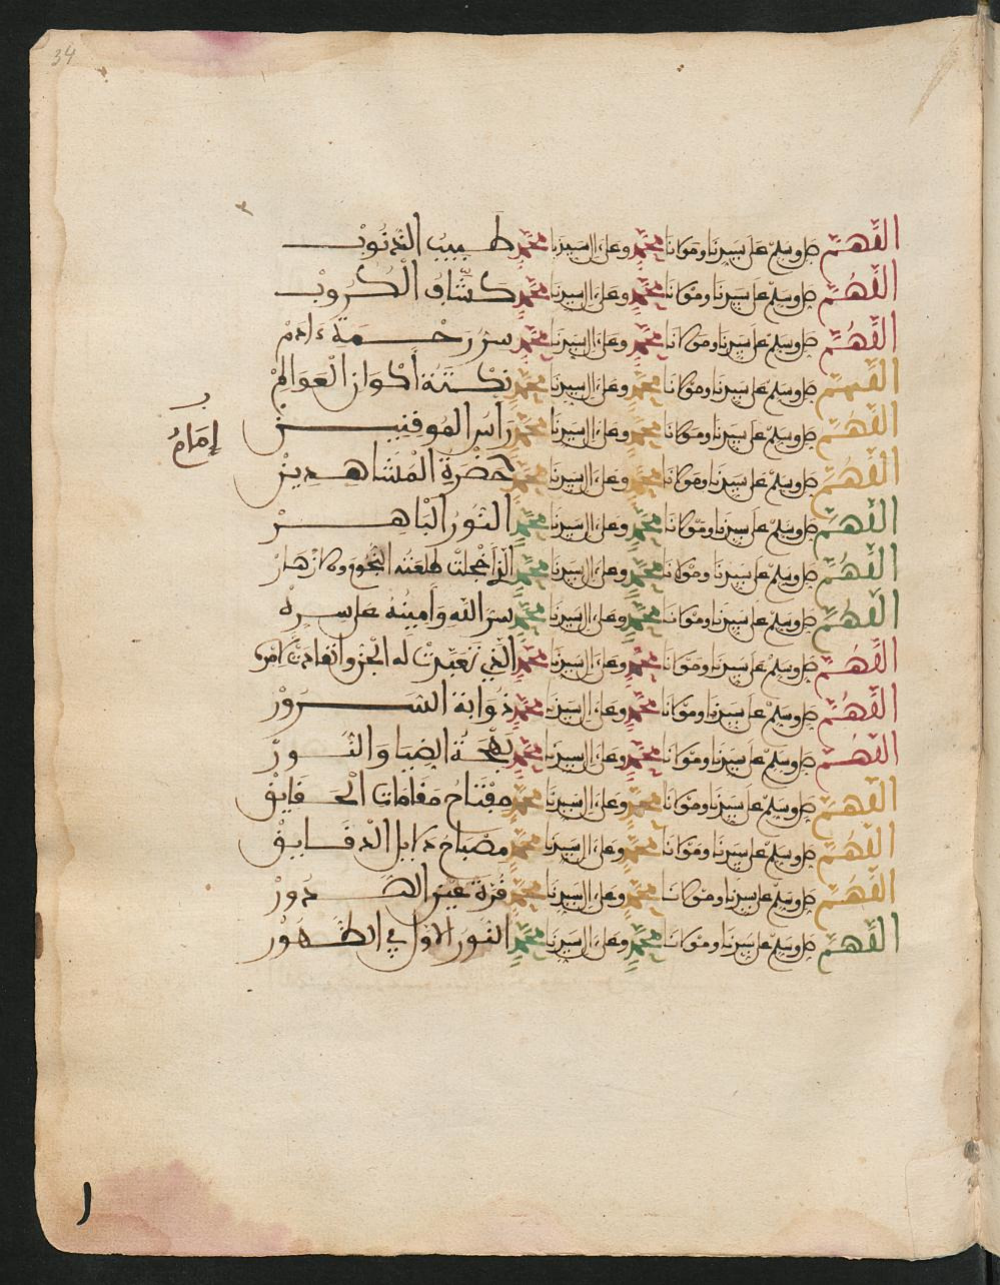 34
اللهم صل وسلم على سيدنا ومولانا محمد وعلى ءال سيدنا محمد طبيب الذنوب
اللهم صل وسلم على سيدنا ومولانا محمد وعلى ءال سيدنا محمد كشاف الكروب
اللهم صل وسلم على سيدنا ومولانا محمد وعلى ءال سيدنا محمد سر رحمة ءادم
اللهم صل وسلم على سيدنا ومولانا محمد وعلى ءال سيدنا محمد نكتة أكوان العوالم
اللهم صل وسلم على سيدنا ومولانا محمد وعلى ءال سيدنا محمد رأس الموقنين
إمام
اللهم صل وسلم على سيدنا ومولانا محمد وعلى ءال سيدنا محمد حضرة المشاهدين
اللهم صل وسلم على سيدنا ومولانا محمد وعلى ءال سيدنا محمد النور الباهر
اللهم صل وسلم على سيدنا ومولانا محمد وعلى ءال سيدنا محمد الذي أخجلت طلعته البحور والازهار
اللهم صل وسلم على سيدنا ومولانا محمد وعلى ءال سيدنا محمد سر الله وأمينه على سره
اللهم صل وسلم على سيدنا ومولانا محمد وعلى ءال سيدنا محمد الذي تعينت له الجن وانقادت لامره
اللهم صل وسلم على سيدنا ومولانا محمد وعلى ءال سيدنا محمد ذوابة السرور
اللهم صل وسلم على سيدنا ومولانا محمد وعلى ءال سيدنا محمد بهجة الضيا والنور
اللهم صل وسلم على سيدنا ومولانا محمد وعلى ءال سيدنا محمد مفتاح مقامات الحقايق
اللهم صل وسلم على سيدنا ومولانا محمد وعلى ءال سيدنا محمد مصباح دلايل الدقايق
اللهم صل وسلم على سيدنا ومولانا محمد وعلى ءال سيدنا محمد قرة عين الصدور
اللهم صل وسلم على سيدنا ومولانا محمد وعلى ءال سيدنا محمد النور الاول في الظهور